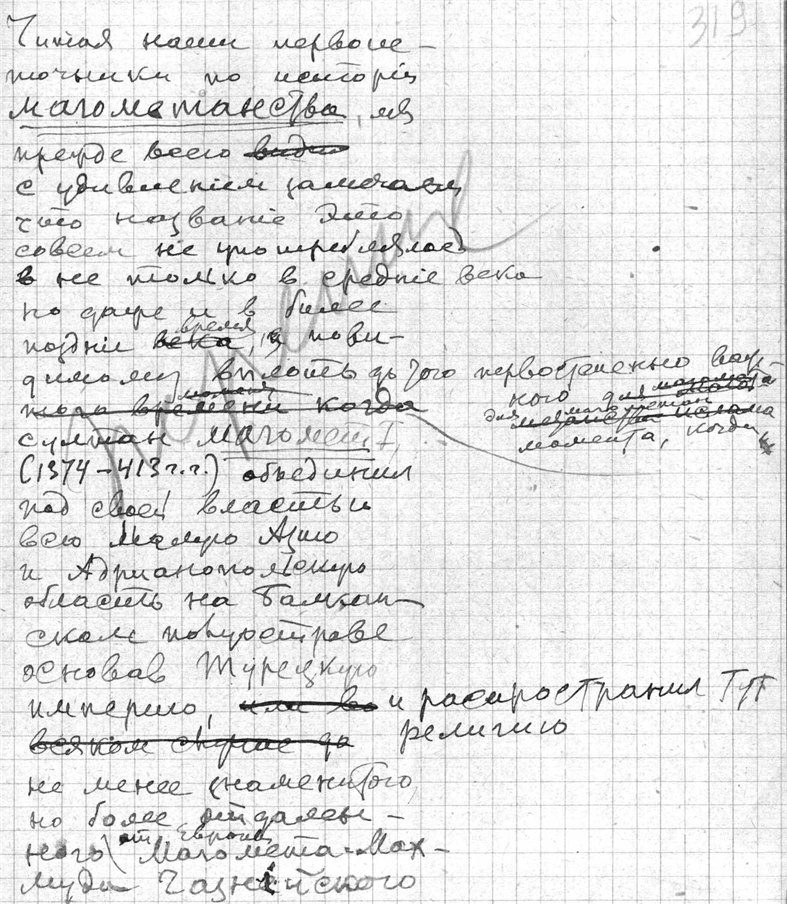 319
Читая наши первоис-
точники по исторіи
магометанства, мы
прежде всего видим
с удивленіем замечаем
что названіе это
совсем не употреблялось
в не только в средніе века
но даже и в более
поздніе века, время
и пови-
димому вплоть до того первостепенно важ-
ного для
магометан
момента, когда
того времени когда
момента
султан Магомет I
(1374–413 г.г.) объединил
под своей властью
всю Малую Азию
и Адрианопольскую
область на Балкан-
ском полуострове
основав Турецкую
империю, или во и распространил тут
всяком случае до религию
не менее знаменитого,
но более отдален-
ного от Европы Магомета-Мах-
муда Газнійского